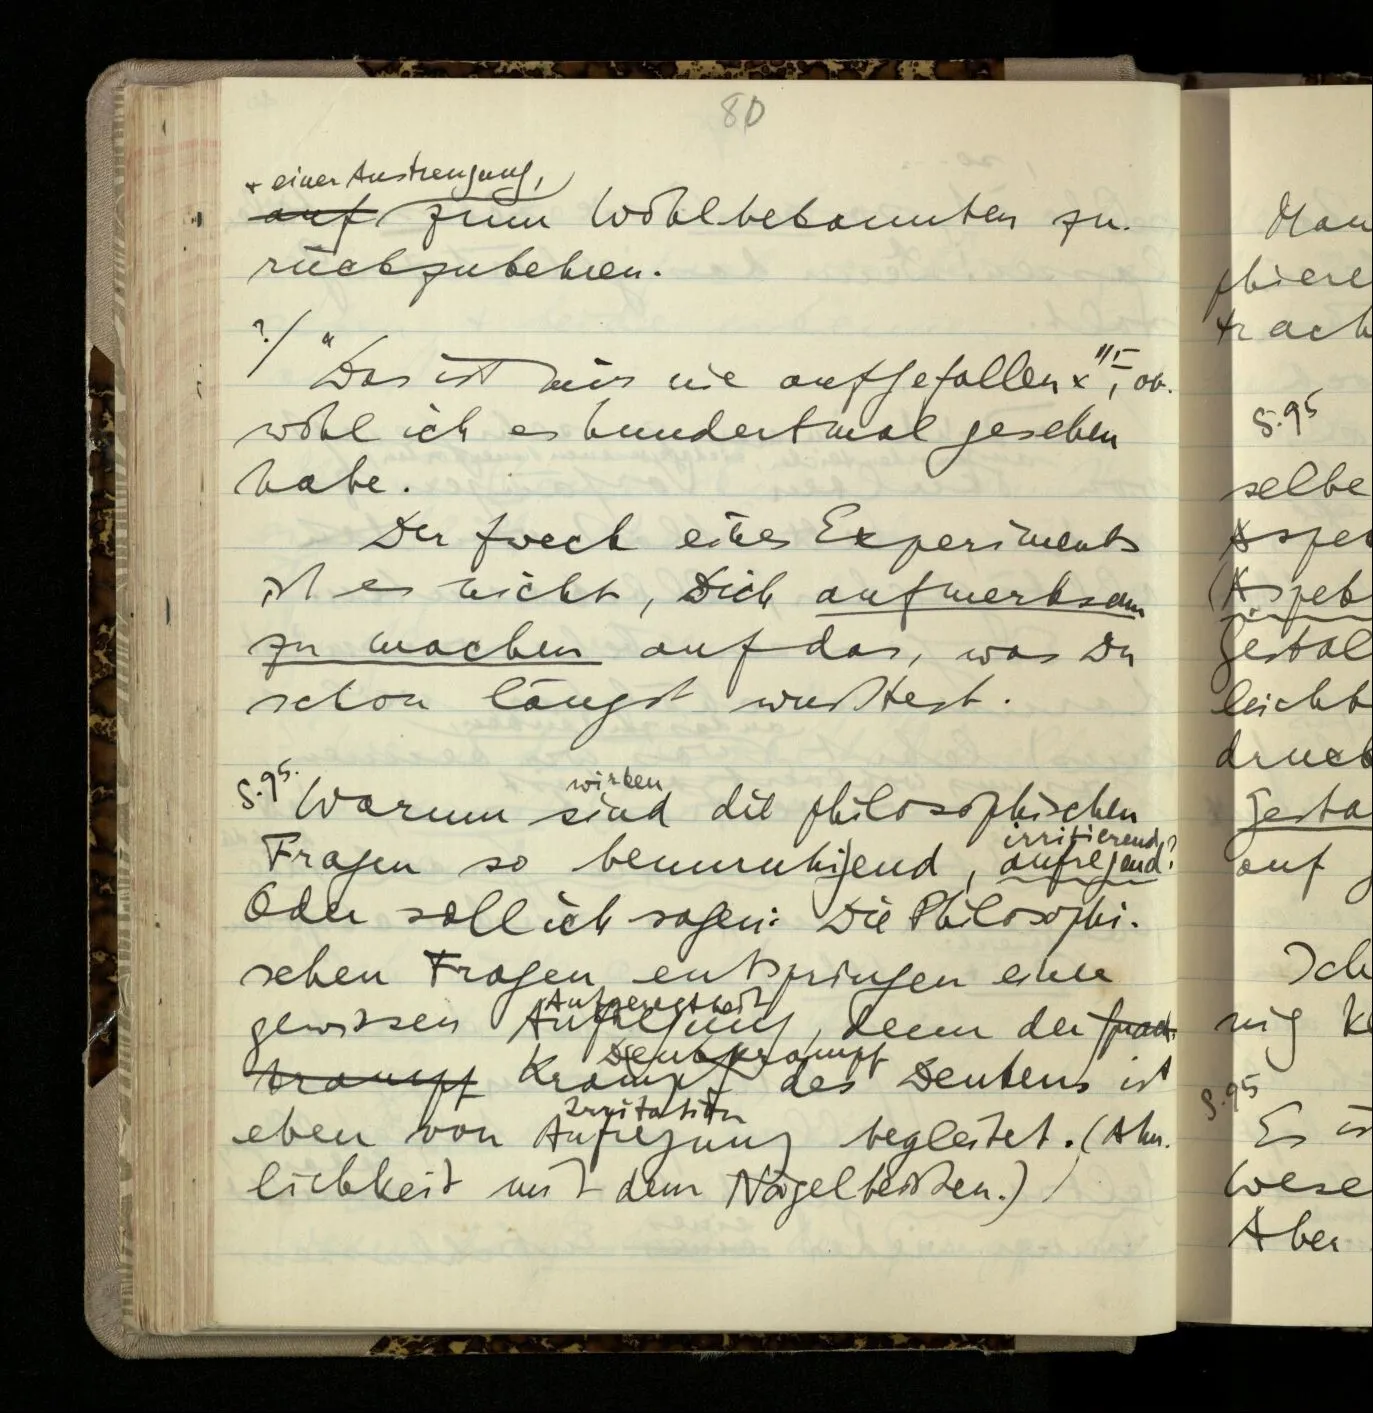 80
× einer Anstrengung,
auf zum Wohlbekannten zu-
rückzukehren.
?/ "Das ist mir nie aufgefallen ×", ob-
wohl ich es hundertmal gesehen
habe.
Der Zweck eines Experiments
ist es nicht, Dich aufmerksam
zu machen auf das, was Du
schon längst wußtest.
wirken
S.95. Warum sind die philosophischen
irritierend?
Fragen so beunruhigend, aufregend?
Oder soll ich sagen: Die Philosophi-
schen Fragen entspringen einer
Aufgeregtheit
gewissen Aufregung, denn der
Denkkrampf
krampf Krampf des Denkens ist
Irritation
eben von Aufregung begleitet. (Ähn-
lichkeit mit dem Nägelbeißen.)
Man
phiere
trach
S.95
selbe
Aspe
(Aspek
Gestal
leicht
druck
Gesta
auf g
Ich
nig k
S.95
Es is
Wese
Aber